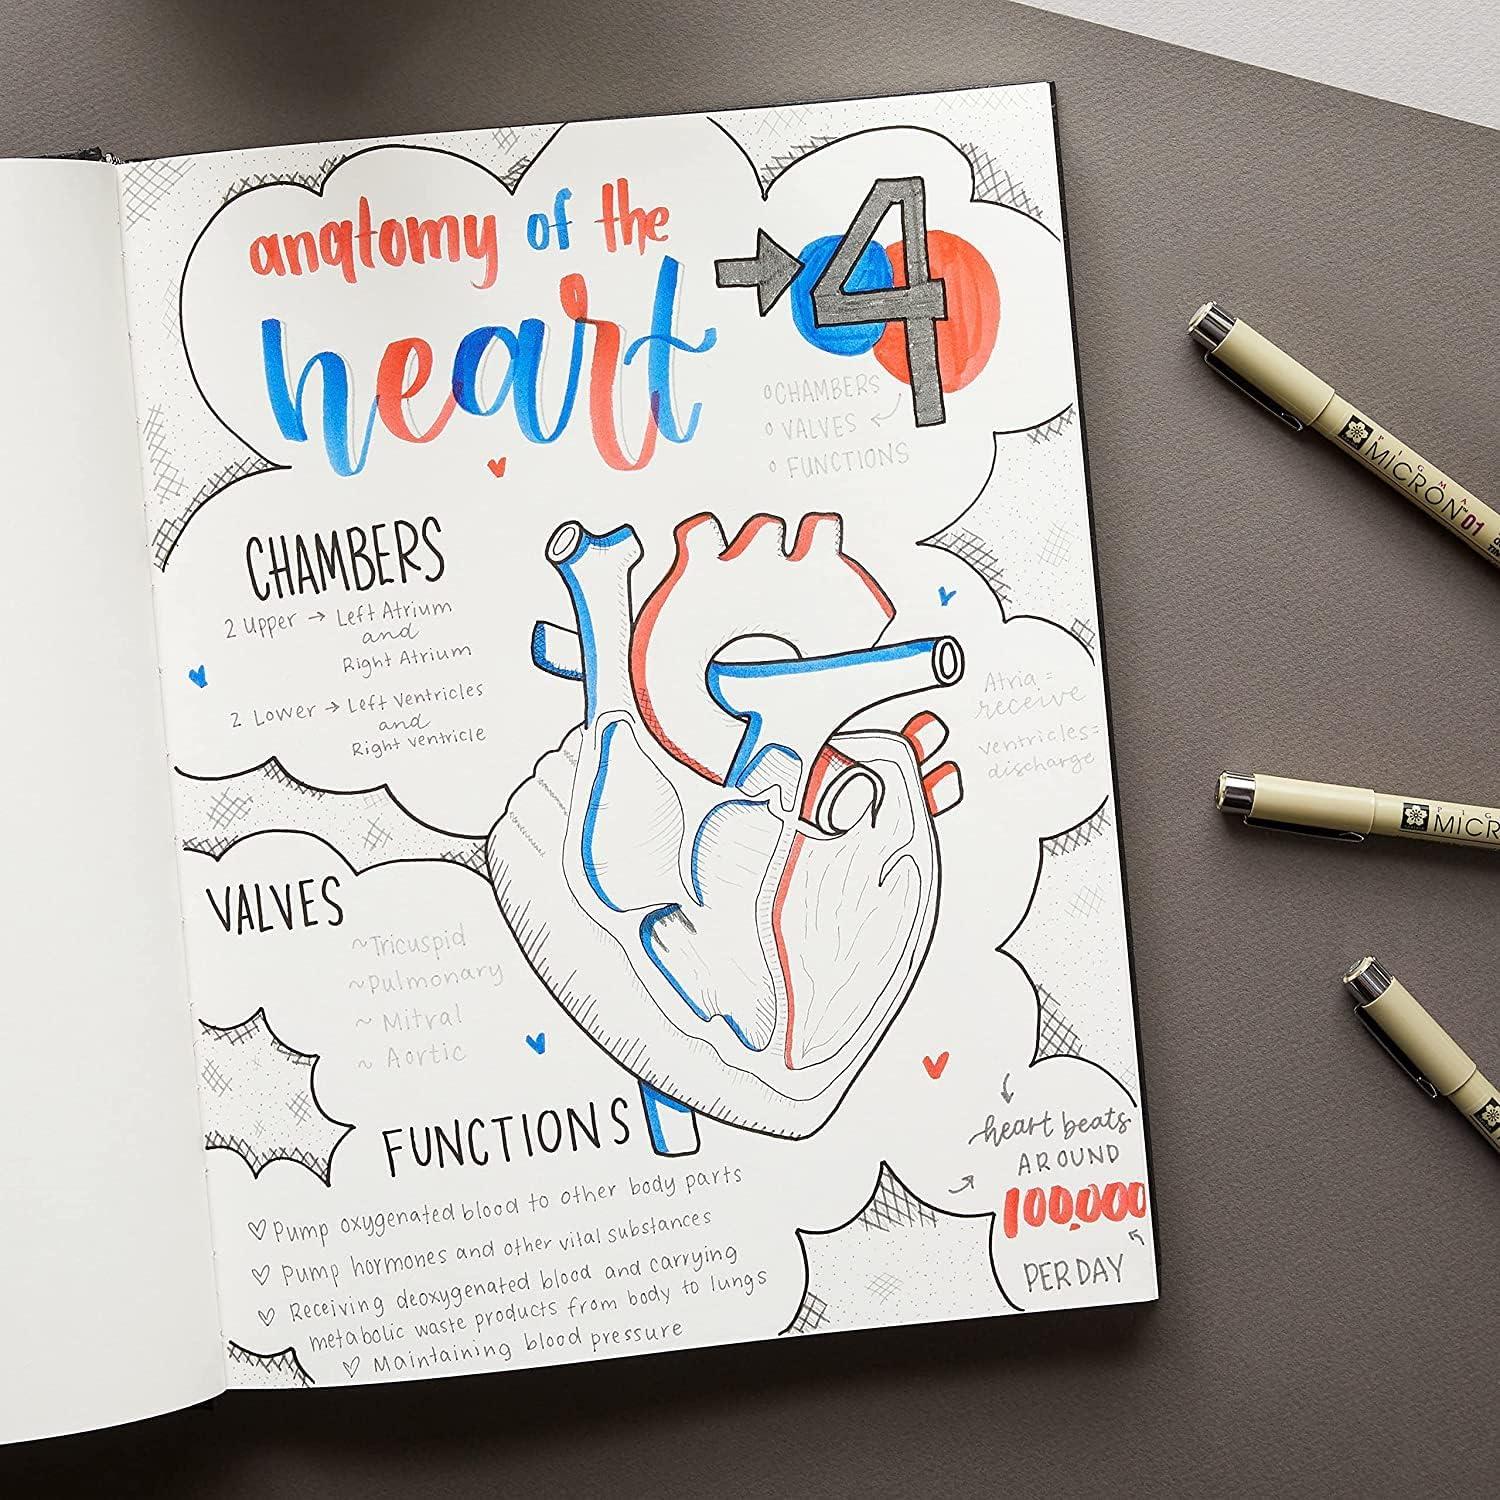 anatomy of the
heart
→ 4
CHAMBERS
VALVES
FUNCTIONS
CHAMBERS
2 Upper → Left Atrium
and
Right Atrium
2 Lower → Left Ventricles
and
Right ventricle
Atria =
receive
ventricles=
discharge
VALVES
~Tricuspid
~Pulmonary
~ Mitral
~ Aortic
FUNCTIONS
♡ Pump oxygenated blood to other body parts
♡ Pump hormones and other vital substances
♡ Receiving deoxygenated blood and carrying
metabolic waste products from body to lungs
♡ Maintaining blood pressure
heart beats
AROUND
100,000
PER DAY
PIGMA
MICRON™ 01
PIG
MICR